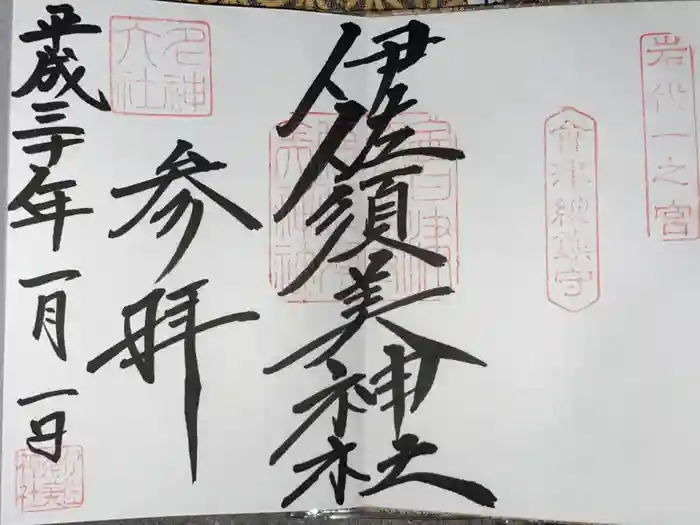 岩代一之宮
会津総鎮守
伊佐須美神社
参拝
名神大社
平成三十年一月一日